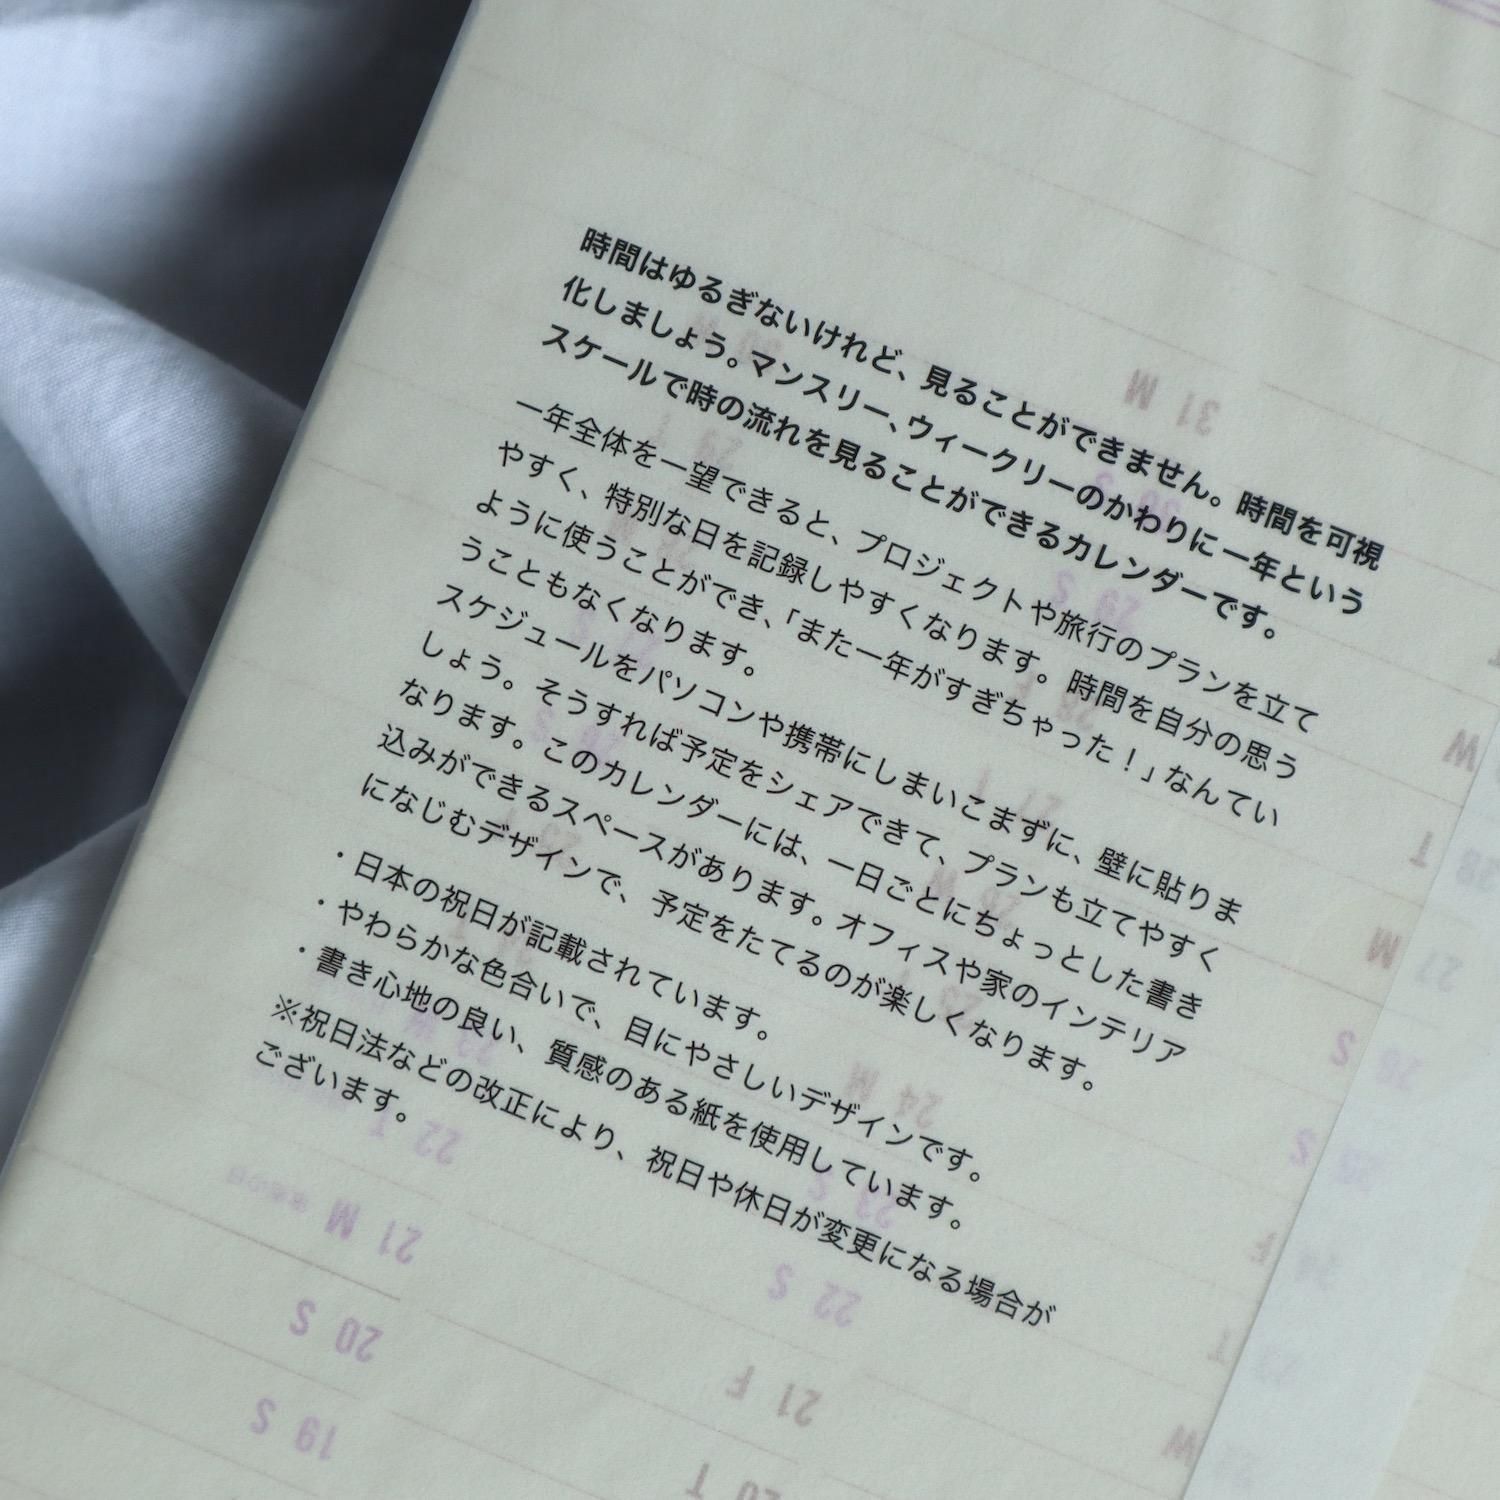 時間はゆるぎないけれど、見ることができません。時間を可視
化しましょう。マンスリー、ウィークリーのかわりに一年という
スケールで時の流れを見ることができるカレンダーです。
一年全体を一望できると、プロジェクトや旅行のプランを立て
やすく、特別な日を記録しやすくなります。時間を自分の思う
ように使うことができ、「また一年がすぎちゃった！」なんてい
うこともなくなります。
スケジュールをパソコンや携帯にしまいこまずに、壁に貼りま
しょう。そうすれば予定をシェアできて、プランも立てやすく
なります。このカレンダーには、一日ごとにちょっとした書き
込みができるスペースがあります。オフィスや家のインテリア
になじむデザインで、予定をたてるのが楽しくなります。
・日本の祝日が記載されています。
・やわらかな色合いで、目にやさしいデザインです。
・書き心地の良い、質感のある紙を使用しています。
※祝日法などの改正により、祝日や休日が変更になる場合が
ございます。
31 M
24 M
22 T
21 M
20 S
19 S
23 S
22 S
21 F
20 T